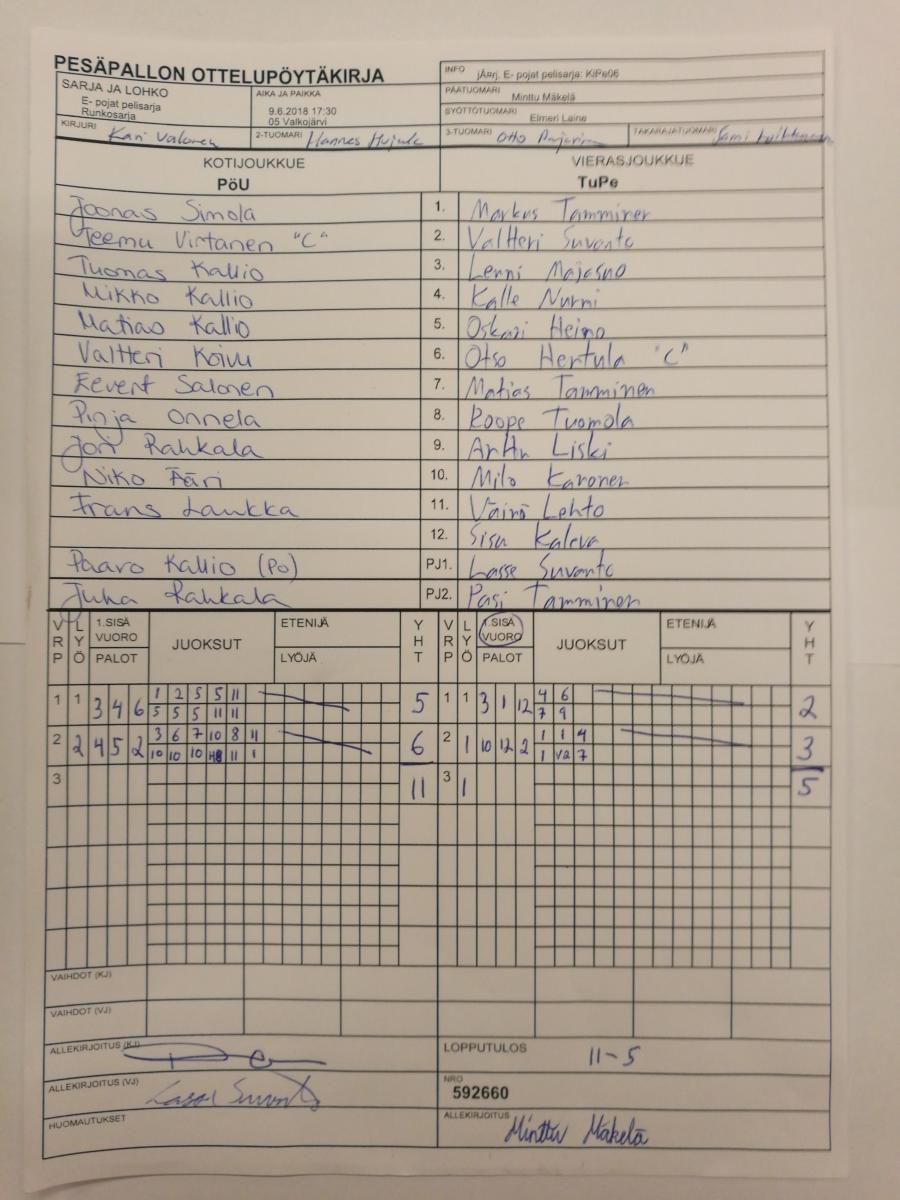 PESÄPALLON OTTELUPÖYTÄKIRJA
INFO jÄ¤rj. E- pojat pelisarja: KiPe06
SARJA JA LOHKO
E- pojat pelisarja
Runkosarja
AIKA JA PAIKKA
9.6.2018 17:30
05 Valkojärvi
PÄÄTUOMARI Minttu Mäkelä
SYÖTTÖTUOMARI Elmeri Laine
KIRJURI Kari Valonen 2-TUOMARI Hannes 3-TUOMARI Otto TAKARAJATUOMARI Sami
KOTIJOUKKUE VIERASJOUKKUE
PöU TuPe
Joonas Simola 1. Markus Tamminen
Teemu Virtanen "C" 2. Valtteri Suvanto
Tuomas Kallio 3. Lenni Majasuo
Mikko Kallio 4. Kalle Nurmi
Matias Kallio 5. Oskari Heino
Valtteri Koivu 6. Otso Hertula "C"
Eevert Salonen 7. Matias Tamminen
Pinja Onnela 8. Roope Tuomola
Joni Rahkala 9. Arttu Liski
Niko Ääri 10. Milo Karonen
Frans Laukka 11. Väinö Lehto
12. Sisu Kaleva
Paavo Kallio (Po) PJ1. Lasse Suvanto
Juha Rahkala PJ2. Pasi Tamminen
VRP LYÖ 1.SISÄ VUORO PALOT JUOKSUT ETENIJÄ LYÖJÄ YHT VRP LYÖ 1.SISÄ VUORO PALOT JUOKSUT ETENIJÄ LYÖJÄ YHT
1 1 3 4 6 1 2 5 5 11 5 1 1 3 1 12 4 6 2
5 5 5 11 11 7 9
2 2 4 5 2 3 6 7 10 8 11 6 2 1 10 12 2 1 1 4 3
10 10 10 11 1 1 V2 7
3 11 3 1 5
VAIHDOT (KJ)
VAIHDOT (VJ)
ALLEKIRJOITUS (KJ) LOPPUTULOS 11-5
ALLEKIRJOITUS (VJ) Lasse Suvanto NRO 592660
HUOMAUTUKSET ALLEKIRJOITUS Minttu Mäkelä